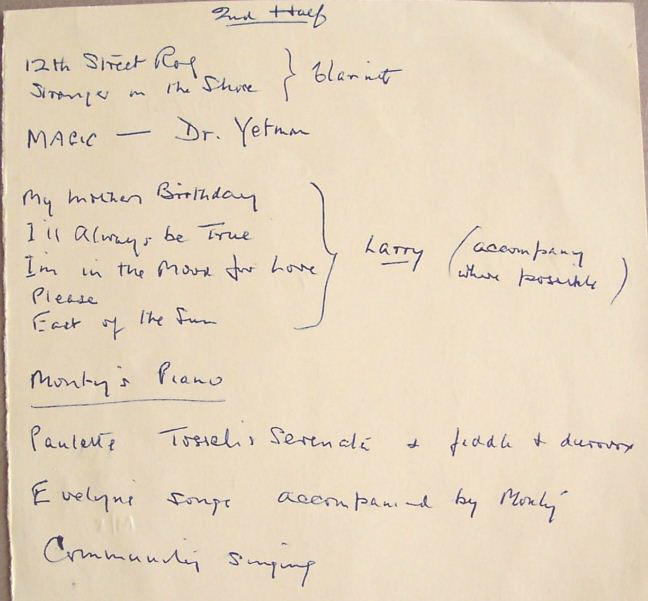 2nd Half
12th Street Rag
Stranger on the Shore } Clarinet
MAGIC — Dr. Yetman
My Mothers Birthday
I'll Always be True
I'm in the Mood for Love
Please
East of the Sun
Larry (accompany
where possible)
Monty's Piano
Paulette Tosselis Serenata + fiddle +
Evelyne songs accompanied by Monty
Community singing